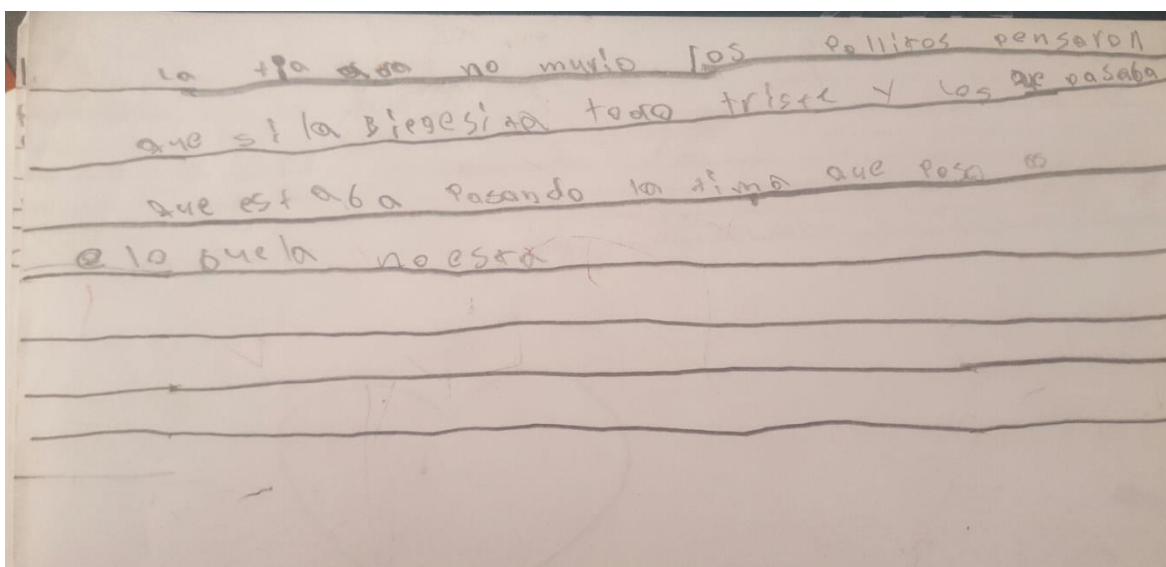 la tia no murio Los pollitos pensaron
que si la Biegesita todo triste y los que pasaba
que estaba Pasando la tima que Paso
e lo buela no esta